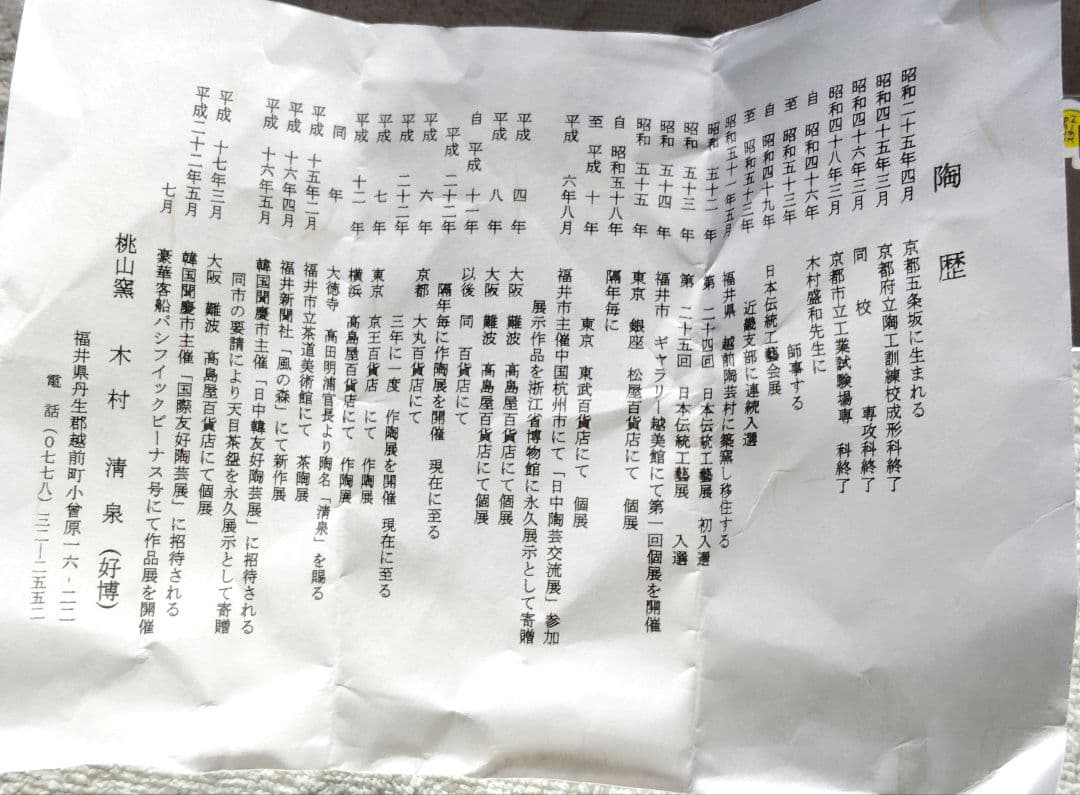 陶 歴
昭和二十五年四月 京都五条坂に生まれる
昭和四十五年三月 京都府立陶工訓練校成形科終了
昭和四十六年三月 同 校 専攻科終了
昭和四十八年三月 京都市立工業試験場専 科終了
自 昭和四十六年 木村盛和先生に
至 昭和五十三年 師事する
自 昭和四十九年 日本伝統工藝会展
至 昭和五十三年 近畿支部に連続入選
昭和五十一年五月 福井県 越前陶芸村に築窯し移住する
昭和 五十二 年 第 二十四回 日本伝統工藝展 初入選
昭和 五十三 年 第 二十五回 日本伝統工藝展 入選
昭和 五十四 年 福井市 ギャラリー越美館にて第一回個展を開催
昭和 五十五 年 東京 銀座 松屋百貨店にて 個展
自 昭和五十八年 隔年毎に
至 平成 十 年 東京 東武百貨店にて 個展
平成 六年八月 福井市主催中国杭州市にて「日中陶芸交流展」参加
展示作品を浙江省博物館に永久展示として寄贈
平成 四 年 大阪 難波 高島屋百貨店にて個展
平成 八 年 大阪 難波 高島屋百貨店にて個展
自 平成 十一 年 以後 同 百貨店にて
平成 二十二 年 隔年毎に作陶展を開催 現在に至る
平成 六 年 京都 大丸百貨店にて
平成 二十二 年 三年に一度 作陶展を開催 現在に至る
平成 七 年 東京 京王百貨店 にて 作陶展
平成 十二 年 横浜 高島屋百貨店にて 作陶展
同 年 大徳寺 高田明浦官長より陶名「清泉」を賜る
平成 十五年二月 福井市立茶道美術館にて 茶陶展
平成 十六年四月 福井新聞社「風の森」にて新作展
平成 十六年五月 韓国聞慶市主催「日中韓友好陶芸展」に招待される
同市の要請により天目茶盌を永久展示として寄贈
平成 十七年三月 大阪 難波 高島屋百貨店にて個展
平成二十二年五月 韓国聞慶市主催「国際友好陶芸展」に招待される
七月 豪華客船パシフイックビーナス号にて作品展を開催
桃山窯 木 村 清 泉 (好博)
福井県丹生郡越前町小曾原一六-二二
電 話(〇七七八)三二―二五五二